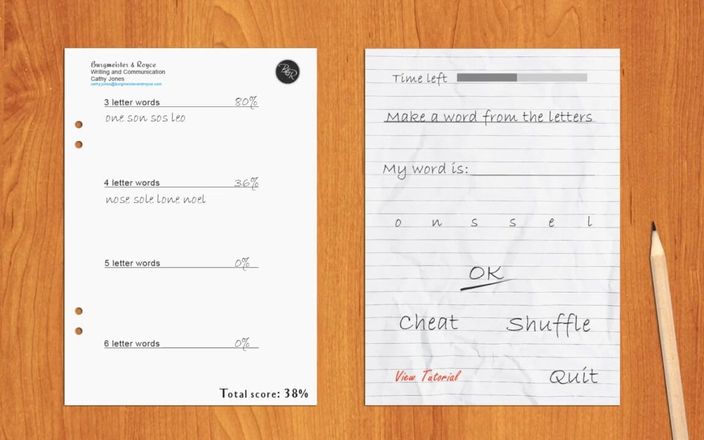 Burgmeister & Royce
Writing and Communication
Cathy Jones
cathy.jones@burgmeisterandroyce.com
B&R
3 letter words 80%
one son sos leo
4 letter words 36%
nose sole lone noel
5 letter words 0%
6 letter words 0%
Total score: 38%
Time left
Make a word from the letters
My word is:
o n s s e l
OK
Cheat Shuffle
View Tutorial Quit